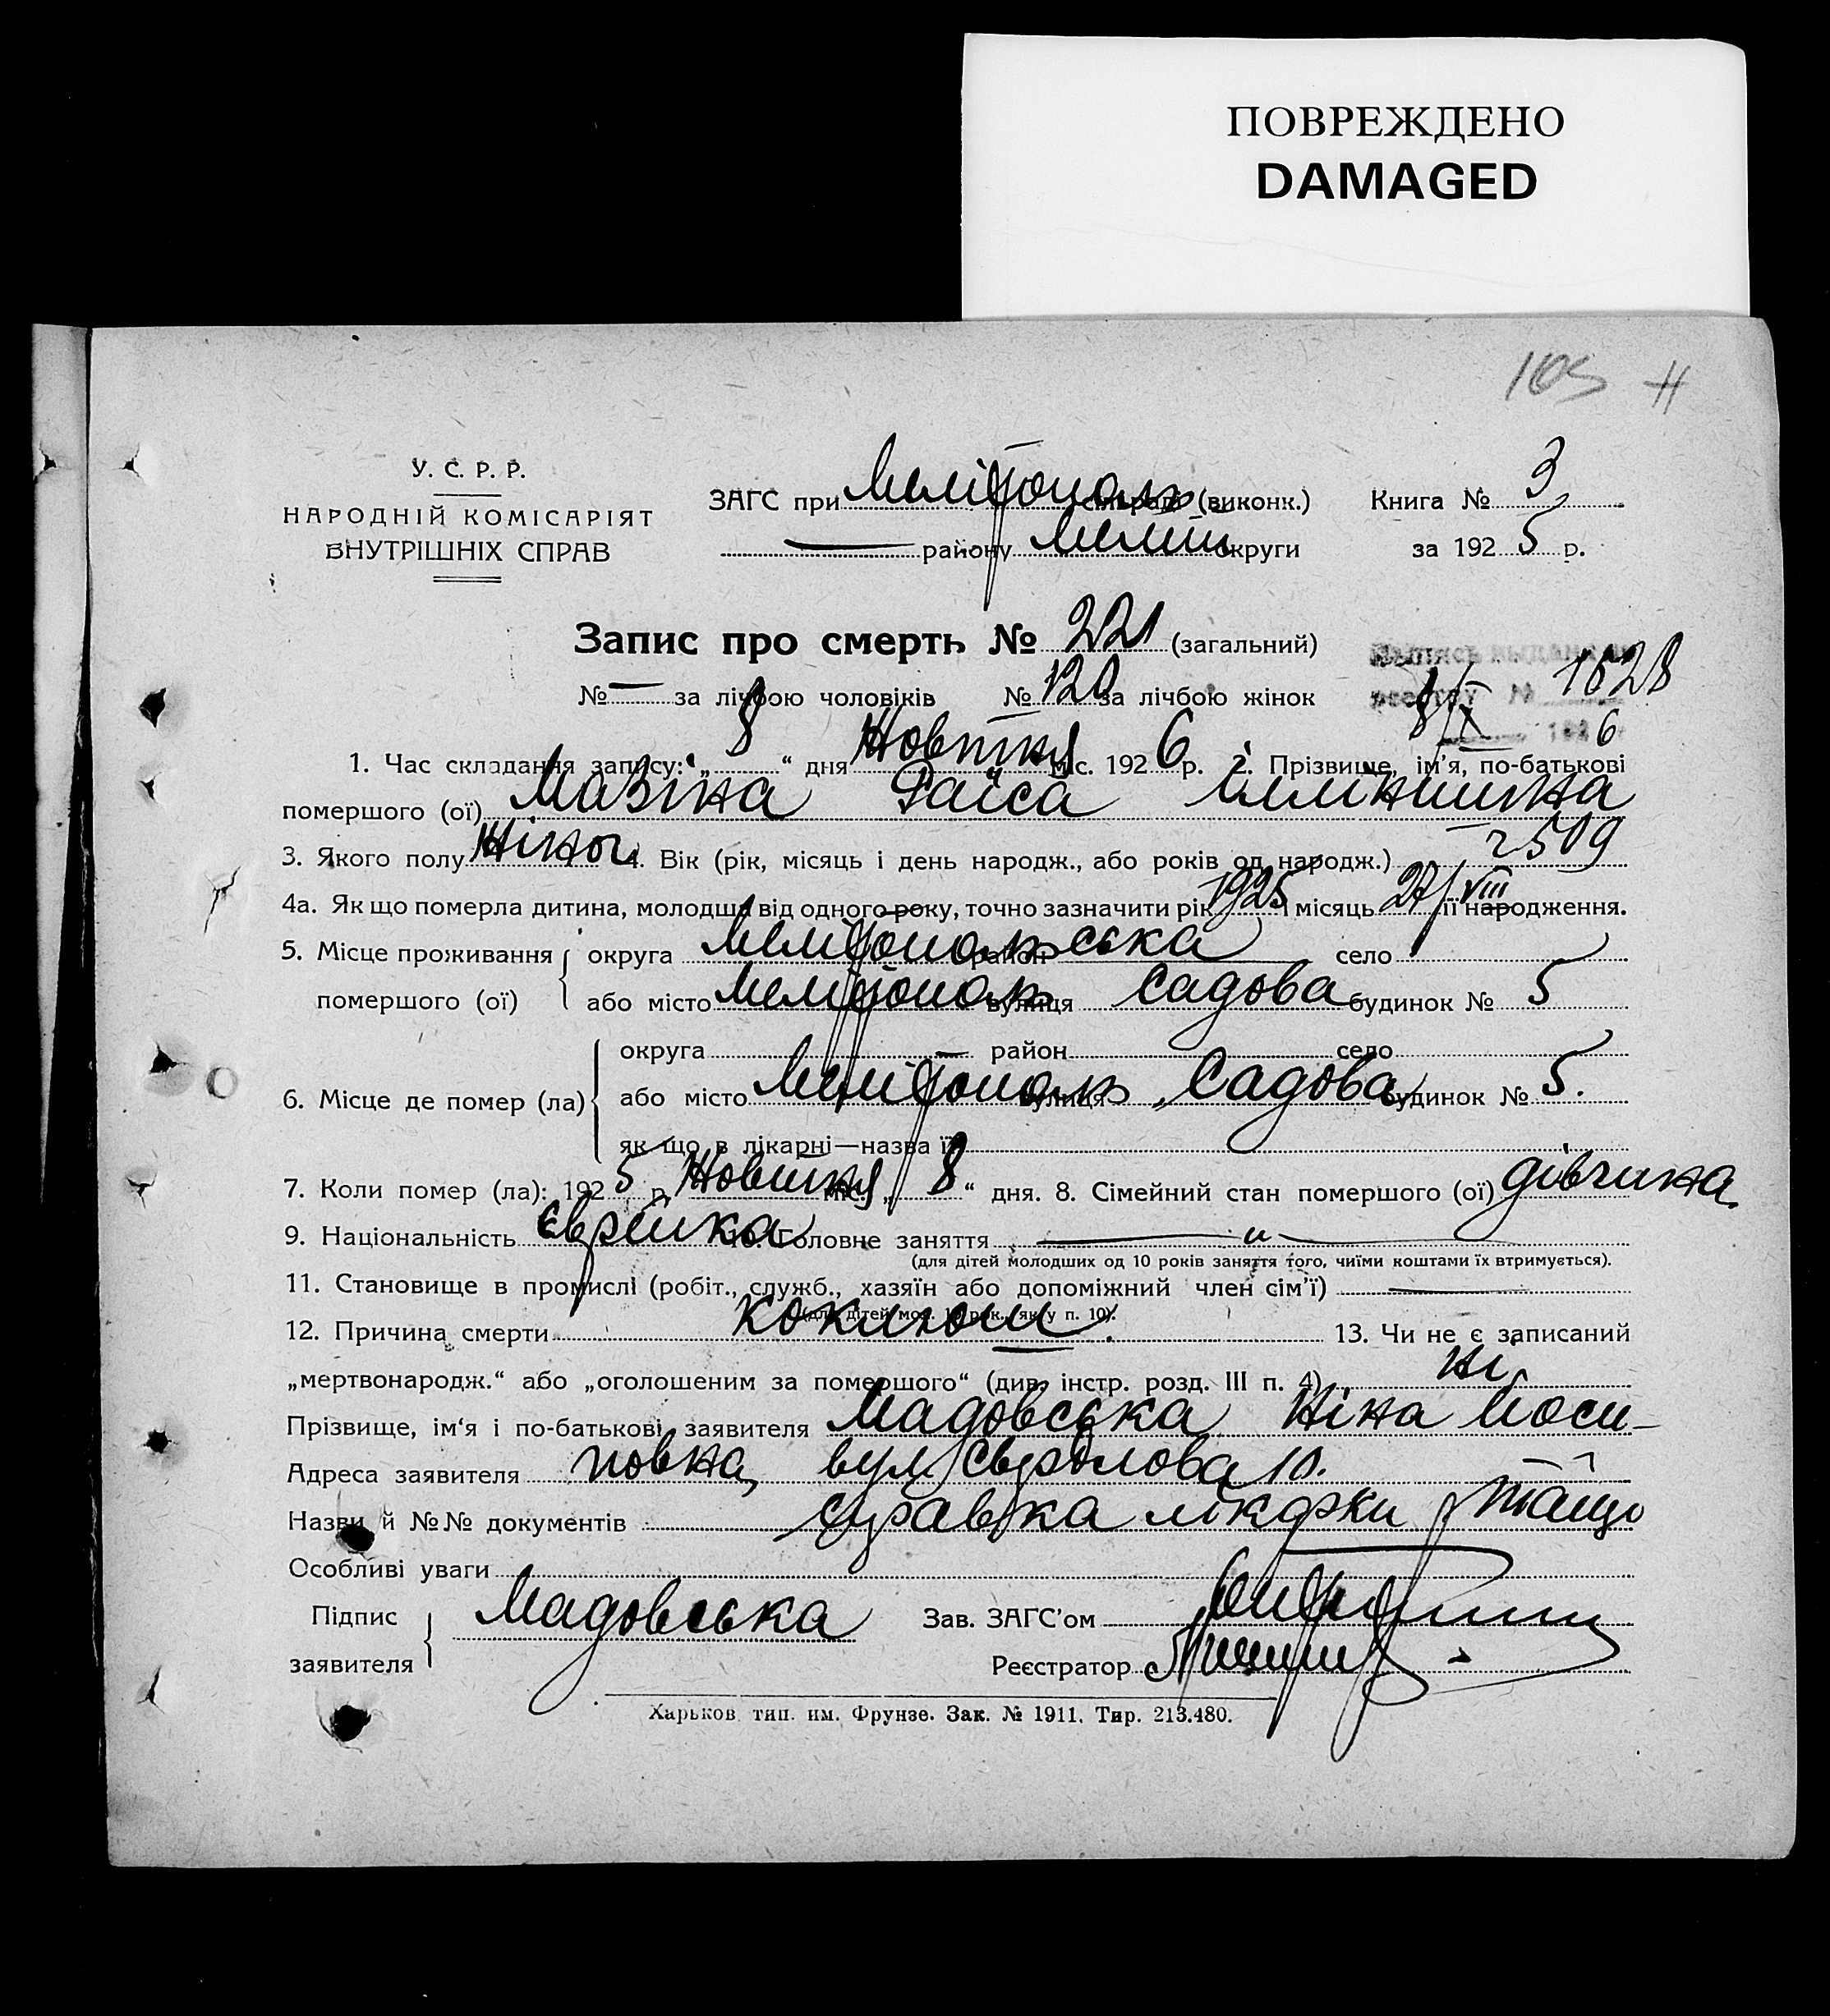 ПОВРЕЖДЕНО
DAMAGED
105
У. С. Р. Р.
НАРОДНІЙ КОМІСАРІЯТ
ВНУТРІШНІХ СПРАВ
ЗАГС при Мелітополь (виконк.) Книга № 3
— району Меліт округи за 192 5 р.
Запис про смерть № 221 (загальний)
№ — за лічбою чоловіків № 120 за лічбою жінок
Запись выдана по
реестру № 1628
8/X 192 6
1. Час складання запису: „ 8 “ дня Жовтня міс. 192 6 р. 2. Прізвище, ім'я, по-батькові
помершого (ої) Мазіна Раіса
3. Якого полу Жіноч. 4. Вік (рік, місяць і день народж., або років од народж.)
4а. Як що померла дитина, молодша від одного року, точно зазначити рік 1925 і місяць 27/VIII її народження.
5. Місце проживання помершого (ої) округа Мелітопольська район — село
або місто Мелітополь вулиця Садова будинок № 5
6. Місце де помер (ла) округа — район село
або місто Мелітополь вулиця „Садова будинок № 5.
як що в лікарні—назва її
7. Коли помер (ла): 192 5 р. Жовтня міс. „ 8 “ дня. 8. Сімейний стан помершого (ої) дівчина.
9. Національність єврейка 10. Головне заняття — „ —
(для дітей молодших од 10 років заняття того, чиїми коштами їх втримується).
11. Становище в промислі (робіт., служб., хазяїн або допоміжний член сім'ї) —
(для дітей мол. 10 рок., як у п. 10).
12. Причина смерти коклюш. 13. Чи не є записаний
„мертвонародж.“ або „оголошеним за помершого“ (див. інстр. розд. III п. 4) ні
Прізвище, ім'я і по-батькові заявителя Мадовська Ніна Йоси-
Адреса заявителя повна, вул Свердлова 10.
Назви й №№ документів справка
Особливі уваги
Підпис заявителя Мадовська Зав. ЗАГС'ом
Реєстратор
Харьков, тип. им. Фрунзе. Зак. № 1911. Тир. 213.480.